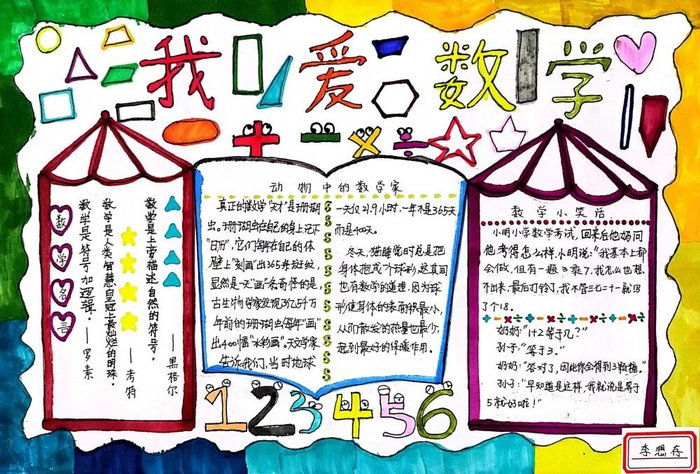 我爱数学
数学名言
数学是符号加逻辑。——罗素
数学是人类智慧皇冠上最灿烂的明珠。——考特
数学是上帝描述自然的符号。——黑格尔
动物中的数学家
真正的数学“天才”是珊瑚
虫。珊瑚虫在自己的身上记下
“日历”，它们每年在自己的体
壁上“刻画”出365条斑纹，
显然是一天“画”一条。奇怪的是，
古生物学家发现3亿5千万
年前的珊瑚虫每年“画”
出400幅“水彩画”。天文学家
告诉我们，当时地球
一天仅21.9小时，一年不是365天
而是400天。
冬天，猫睡觉时总是把
身体抱成个球形，这其间
也有数学的道理，因为球
形使身体的表面积最小，
从而散发的热量也最少，
起到最好的保暖作用。
数学小笑话
小明小学数学考试，回来后他妈问
他考得怎么样，小明说：“我基本上都
会做，但有一题3乘7，我怎么也想
不出来，最后打铃了，我不管三七二十一就写
了个18。
奶奶：“1+2等于几？”
孙子：“等于3。”
奶奶：“答对了，因此你会得到3颗糖。”
孙子：“早知道是这样，我就说是等于
5就好啦！”
1 2 3 4 5 6
李想存